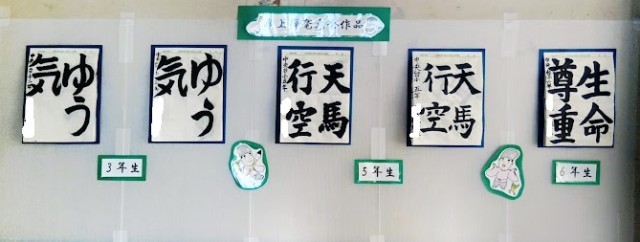 ゆう
気
ゆう
気
天馬
行空
天馬
行空
生命
尊重
3年生
5年生
6年生